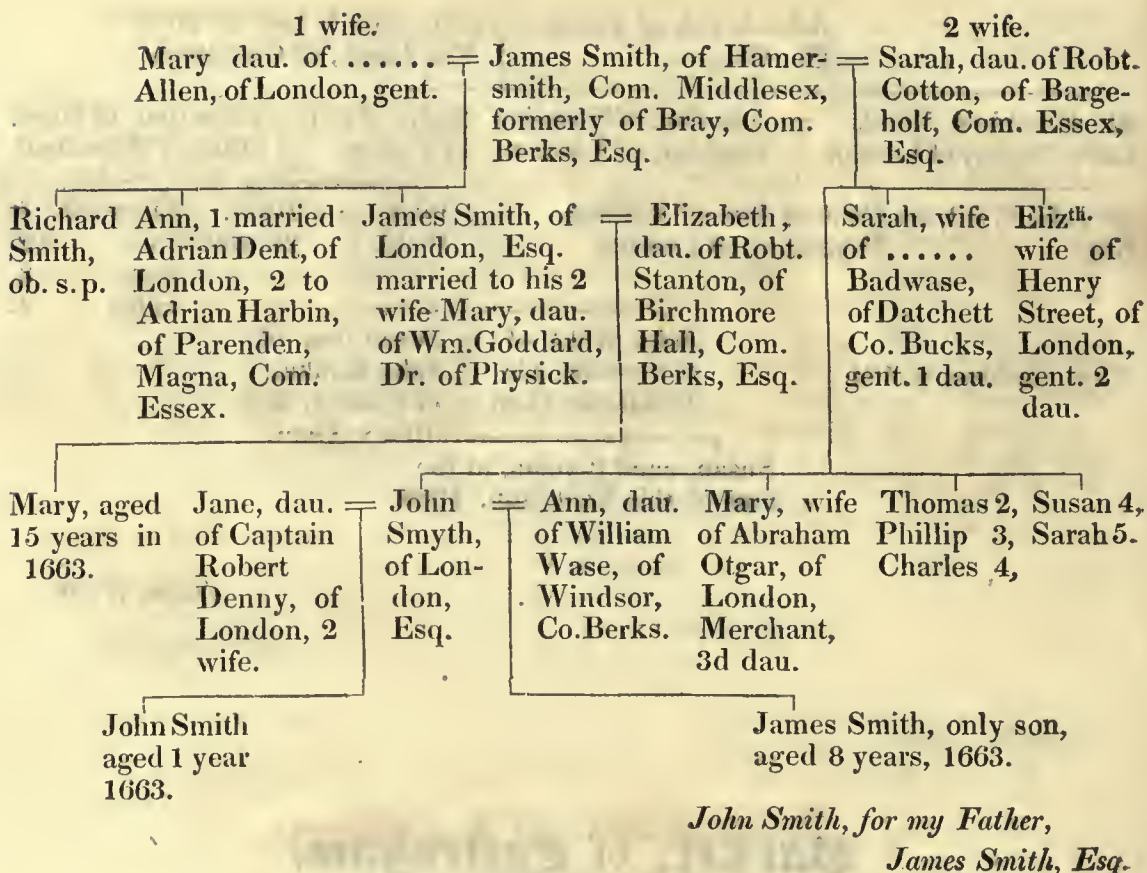 1 wife.
Mary dau. of ...... = James Smith, of Hamer- = Sarah, dau. of Robt.
2 wife.
Allen, of London, gent.
smith, Com. Middlesex,
formerly of Bray, Com.
Berks, Esq.
Cotton, of Barge-
holt, Com. Essex,
Esq.
Richard
Smith,
ob. s. p.
Ann, 1 married
Adrian Dent, of
London, 2 to
Adrian Harbin,
of Parenden,
Magna, Com.
Essex.
James Smith, of
London, Esq.
married to his 2
wife Mary, dau.
of Wm. Goddard,
Dr. of Physick.
=
Elizabeth,
dau. of Robt.
Stanton, of
Birchmore
Hall, Com.
Berks, Esq.
Sarah, wife
of ......
Badwase,
of Datchett
Co. Bucks,
gent. 1 dau.
Elizth.
wife of
Henry
Street, of
London,
gent. 2
dau.
Mary, aged
15 years in
1663.
Jane, dau.
of Captain
Robert
Denny, of
London, 2
wife.
=
John
Smyth,
of Lon-
don,
Esq.
=
Ann, dau.
of William
Wase, of
Windsor,
Co. Berks.
Mary, wife
of Abraham
Otgar, of
London,
Merchant,
3d dau.
Thomas 2,
Phillip 3,
Charles 4,
Susan 4,
Sarah 5.
John Smith
aged 1 year
1663.
James Smith, only son,
aged 8 years, 1663.
John Smith, for my Father,
James Smith, Esq.